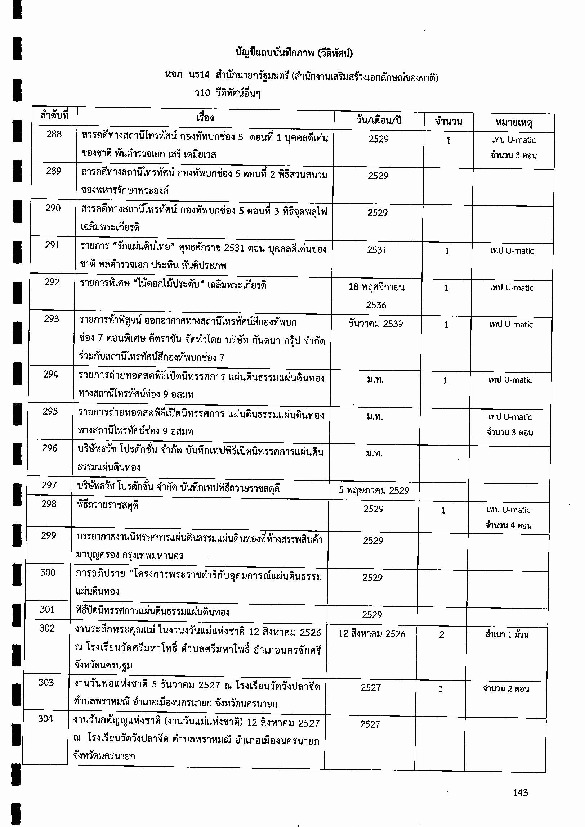 บัญชีแถบบันทึกภาพ (วีดิทัศน์)
หจภ นร14 สำนักนายกรัฐมนตรี (สำนักงานเสริมสร้างเอกลักษณ์ของชาติ)
ว10 วีดิทัศน์อื่นๆ
ลำดับที่ เรื่อง วัน/เดือน/ปี จำนวน หมายเหตุ
288 สารคดีทางสถานีโทรทัศน์ กองทัพบกช่อง 5 ตอนที่ 1 บุคคลดีเด่น 2529 1 เทป U-matic
ของชาติ พันตำรวจเอก เสรี เตมียเวส จำนวน 3 ตอน
289 สารคดีทางสถานีโทรทัศน์ กองทัพบกช่อง 5 ตอนที่ 2 พิธีสวนสนาม 2529
ของทหารรักษาพระองค์
290 สารคดีทางสถานีโทรทัศน์ กองทัพบกช่อง 5 ตอนที่ 3 พิธีจุดพลุไฟ 2529
เฉลิมพระเกียรติ
291 รายการ "รักแผ่นดินไทย" พุทธศักราช 2531 ตอน บุคคลดีเด่นของ 2531 1 เทป U-matic
ชาติ พลตำรวจเอก ประทิน สันติประภพ
292 รายการพิเศษ "ไม้ดอกไม้ประดับ" เฉลิมพระเกียรติ 18 พฤศจิกายน 1 เทป U-matic
2536
293 รายการท้าพิสูจน์ ออกอากาศทางสถานีโทรทัศน์สีกองทัพบก ธันวาคม 2539 1 เทป U-matic
ช่อง 7 ตอนพิเศษ คีตราชัน จัดทำโดย บริษัท กันตนา กรุ๊ป จำกัด
ร่วมกับสถานีโทรทัศน์สีกองทัพบกช่อง 7
294 รายการถ่ายทอดสดพิธีเปิดนิทรรศการ แผ่นดินธรรมแผ่นดินทอง ม.ท. 1 เทป U-matic
ทางสถานีโทรทัศน์ช่อง 9 อสมท
295 รายการถ่ายทอดสดพิธีเปิดนิทรรศการ แผ่นดินธรรมแผ่นดินทอง ม.ท. เทป U-matic
ทางสถานีโทรทัศน์ช่อง 9 อสมท จำนวน 3 ตอน
296 บริษัทสวัท โปรดักชั่น จำกัด บันทึกเทปพิธีเปิดนิทรรศการแผ่นดิน ม.ท.
ธรรมแผ่นดินทอง
297 บริษัทสวัท โปรดักชั่น จำกัด บันทึกเทปพิธีถวายราชสดุดี 5 พฤษภาคม 2529
298 พิธีถวายราชสดุดี 2529 1 เทป U-matic
จำนวน 4 ตอน
299 บรรยากาศงานนิทรรศการแผ่นดินธรรมแผ่นดินทองที่ห้างสรรพสินค้า 2529
มาบุญครอง กรุงเทพมหานคร
300 การอภิปราย "โครงการพระราชดำริกับอุดมการณ์แผ่นดินธรรม 2529
แผ่นดินทอง
301 พิธีปิดนิทรรศการแผ่นดินธรรมแผ่นดินทอง 2529
302 งานระลึกพระคุณแม่ ในงานวันแม่แห่งชาติ 12 สิงหาคม 2526 12 สิงหาคม 2526 2 สำเนา 1 ม้วน
ณ โรงเรียนวัดศรีมหาโพธิ์ ตำบลศรีมหาโพธิ์ อำเภอนครชัยศรี
จังหวัดนครปฐม
303 งานวันพ่อแห่งชาติ 5 ธันวาคม 2527 ณ โรงเรียนวัดวังปลาจีด 2527 1 จำนวน 2 ตอน
ตำบลพราหมณี อำเภอเมืองนครนายก จังหวัดนครนายก
304 งานวันกตัญญูแห่งชาติ (งานวันแม่แห่งชาติ) 12 สิงหาคม 2527 2527
ณ โรงเรียนวัดวังปลาจีด ตำบลพราหมณี อำเภอเมืองนครนายก
จังหวัดนครนายก
143